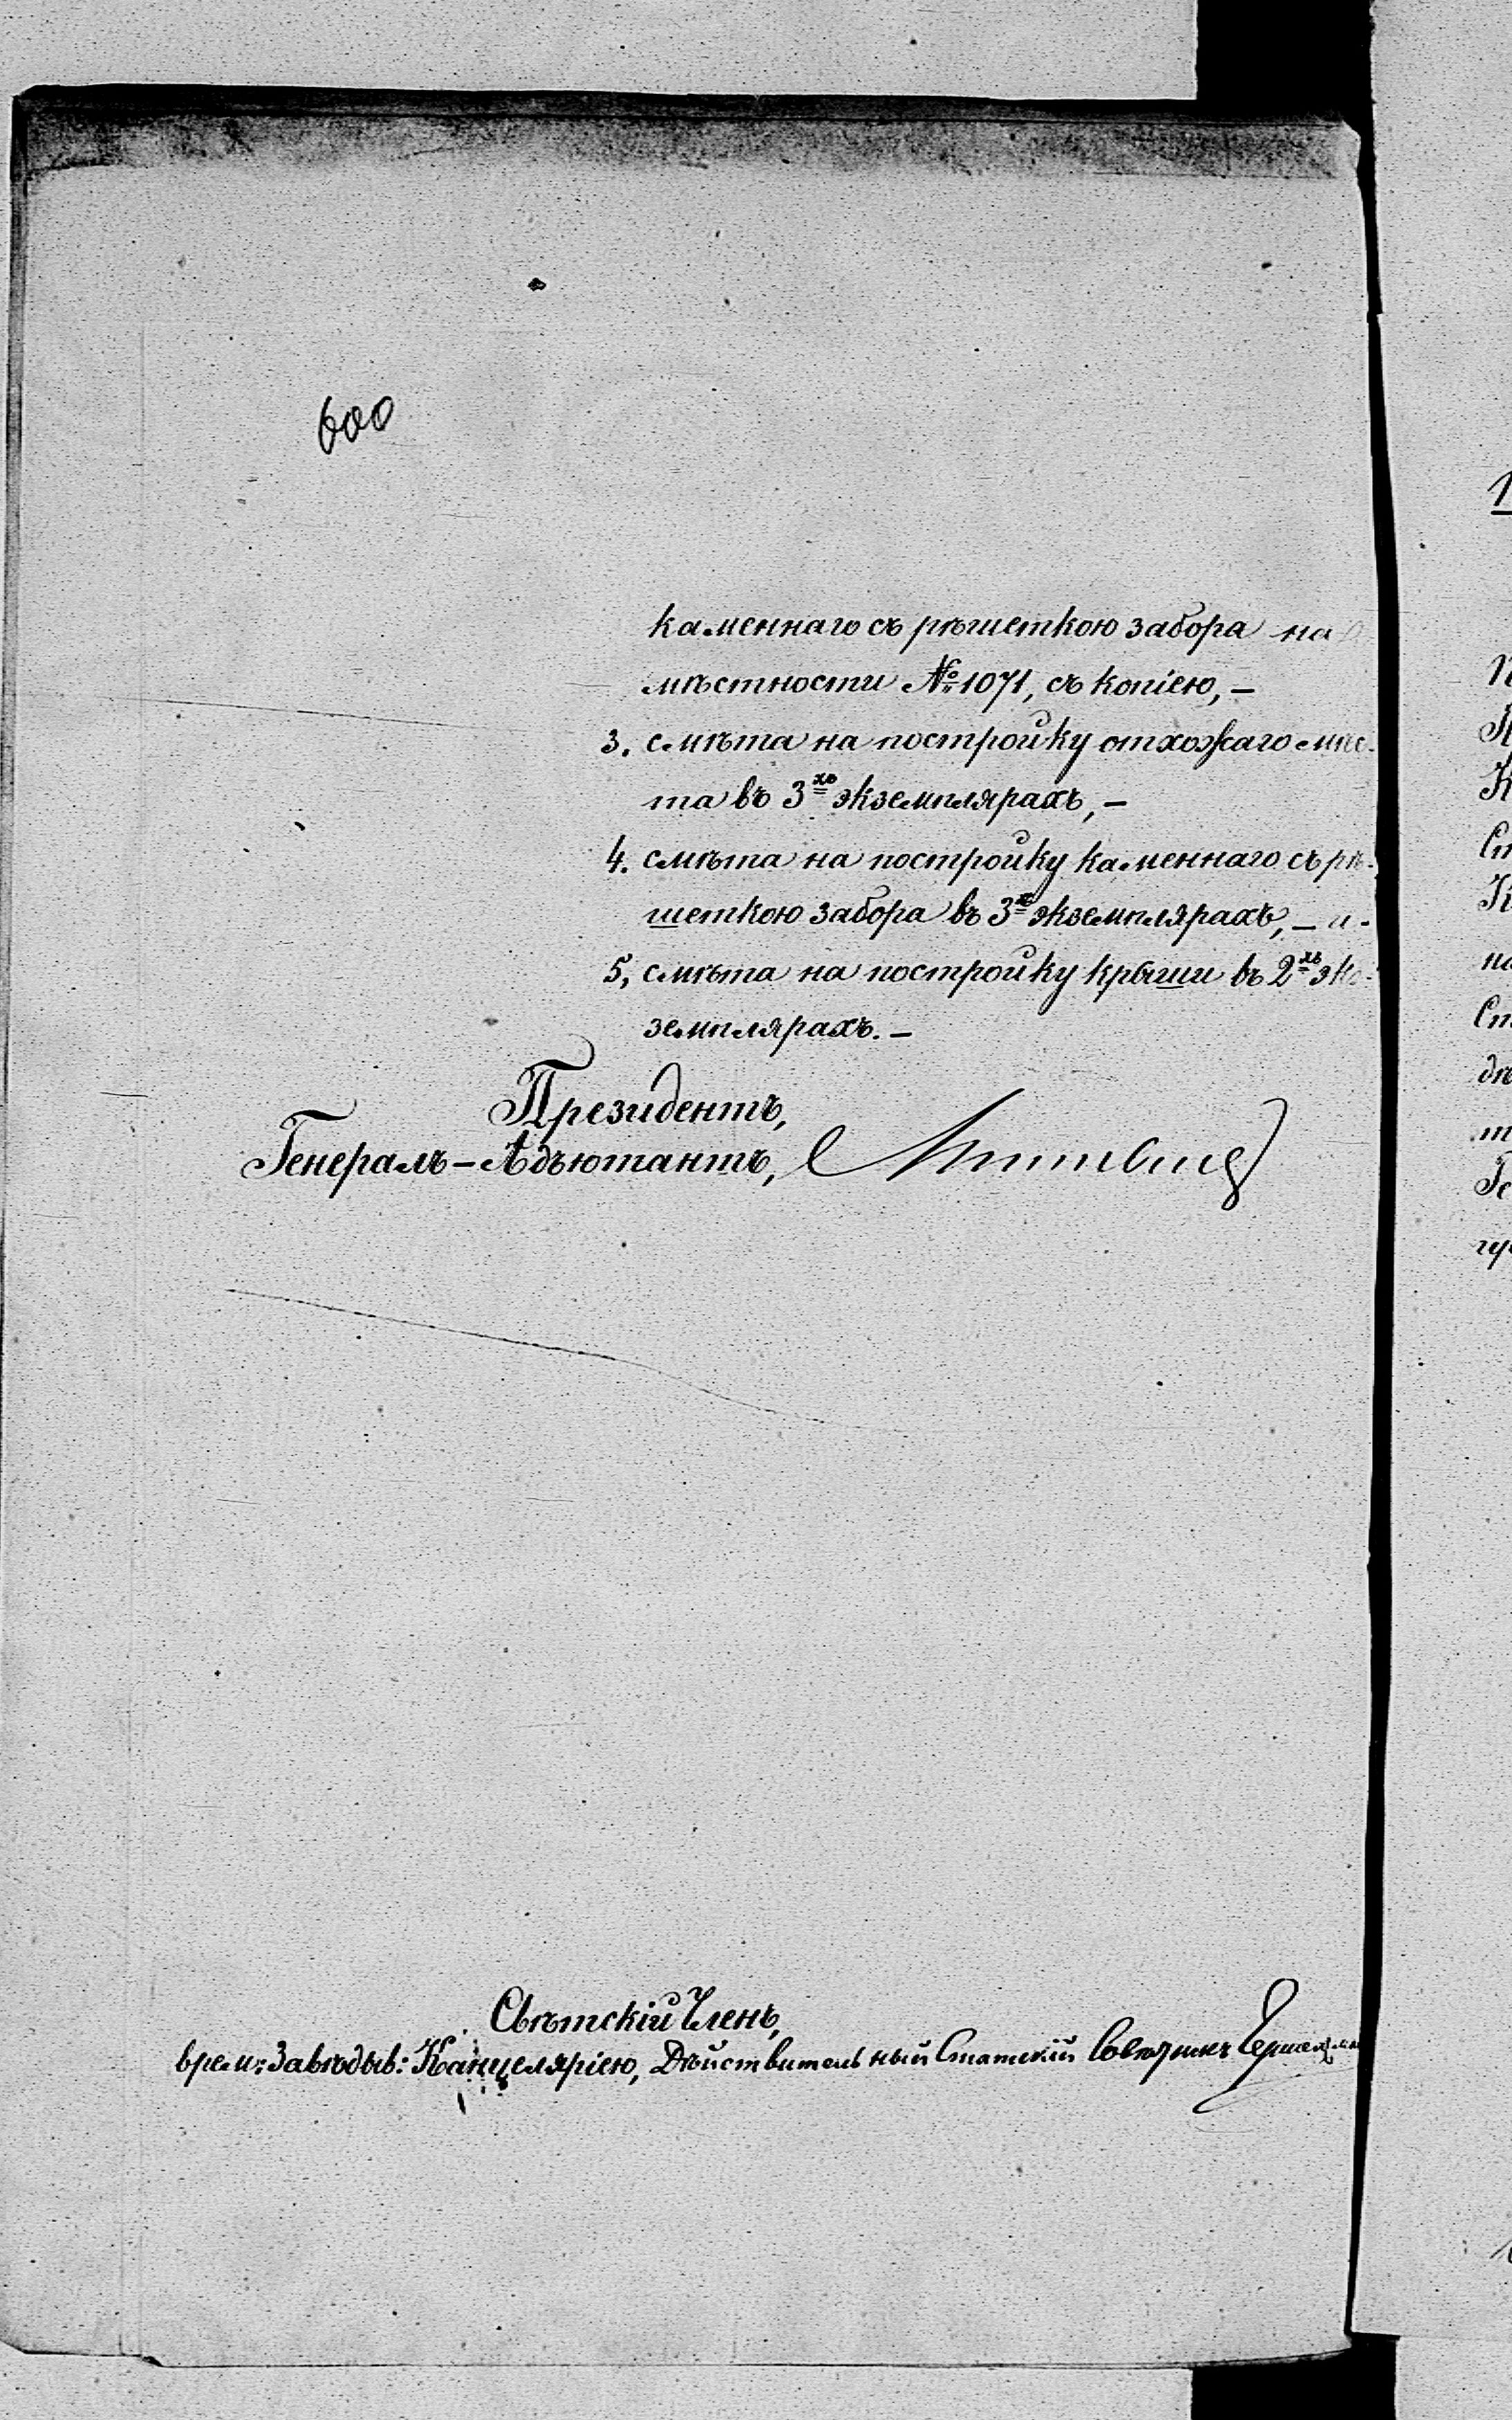 600
каменнаго съ рѣшеткою забора на
мѣстности № 1071, съ копіею, —
3. смѣта на постройку отхожаго мѣс-
та въ 3хъ экземплярахъ, —
4. смѣта на постройку каменнаго съ рѣ-
шеткою забора въ 3хъ экземплярахъ, — и
5, смѣта на постройку крыши въ 2хъ эк-
земплярахъ. —
Президентъ,
Генералъ-Адъютантъ,
Свѣтскій Членъ,
врем: Завѣдыв: Канцеляріею, Дѣйствительный Статскій Совѣтникъ